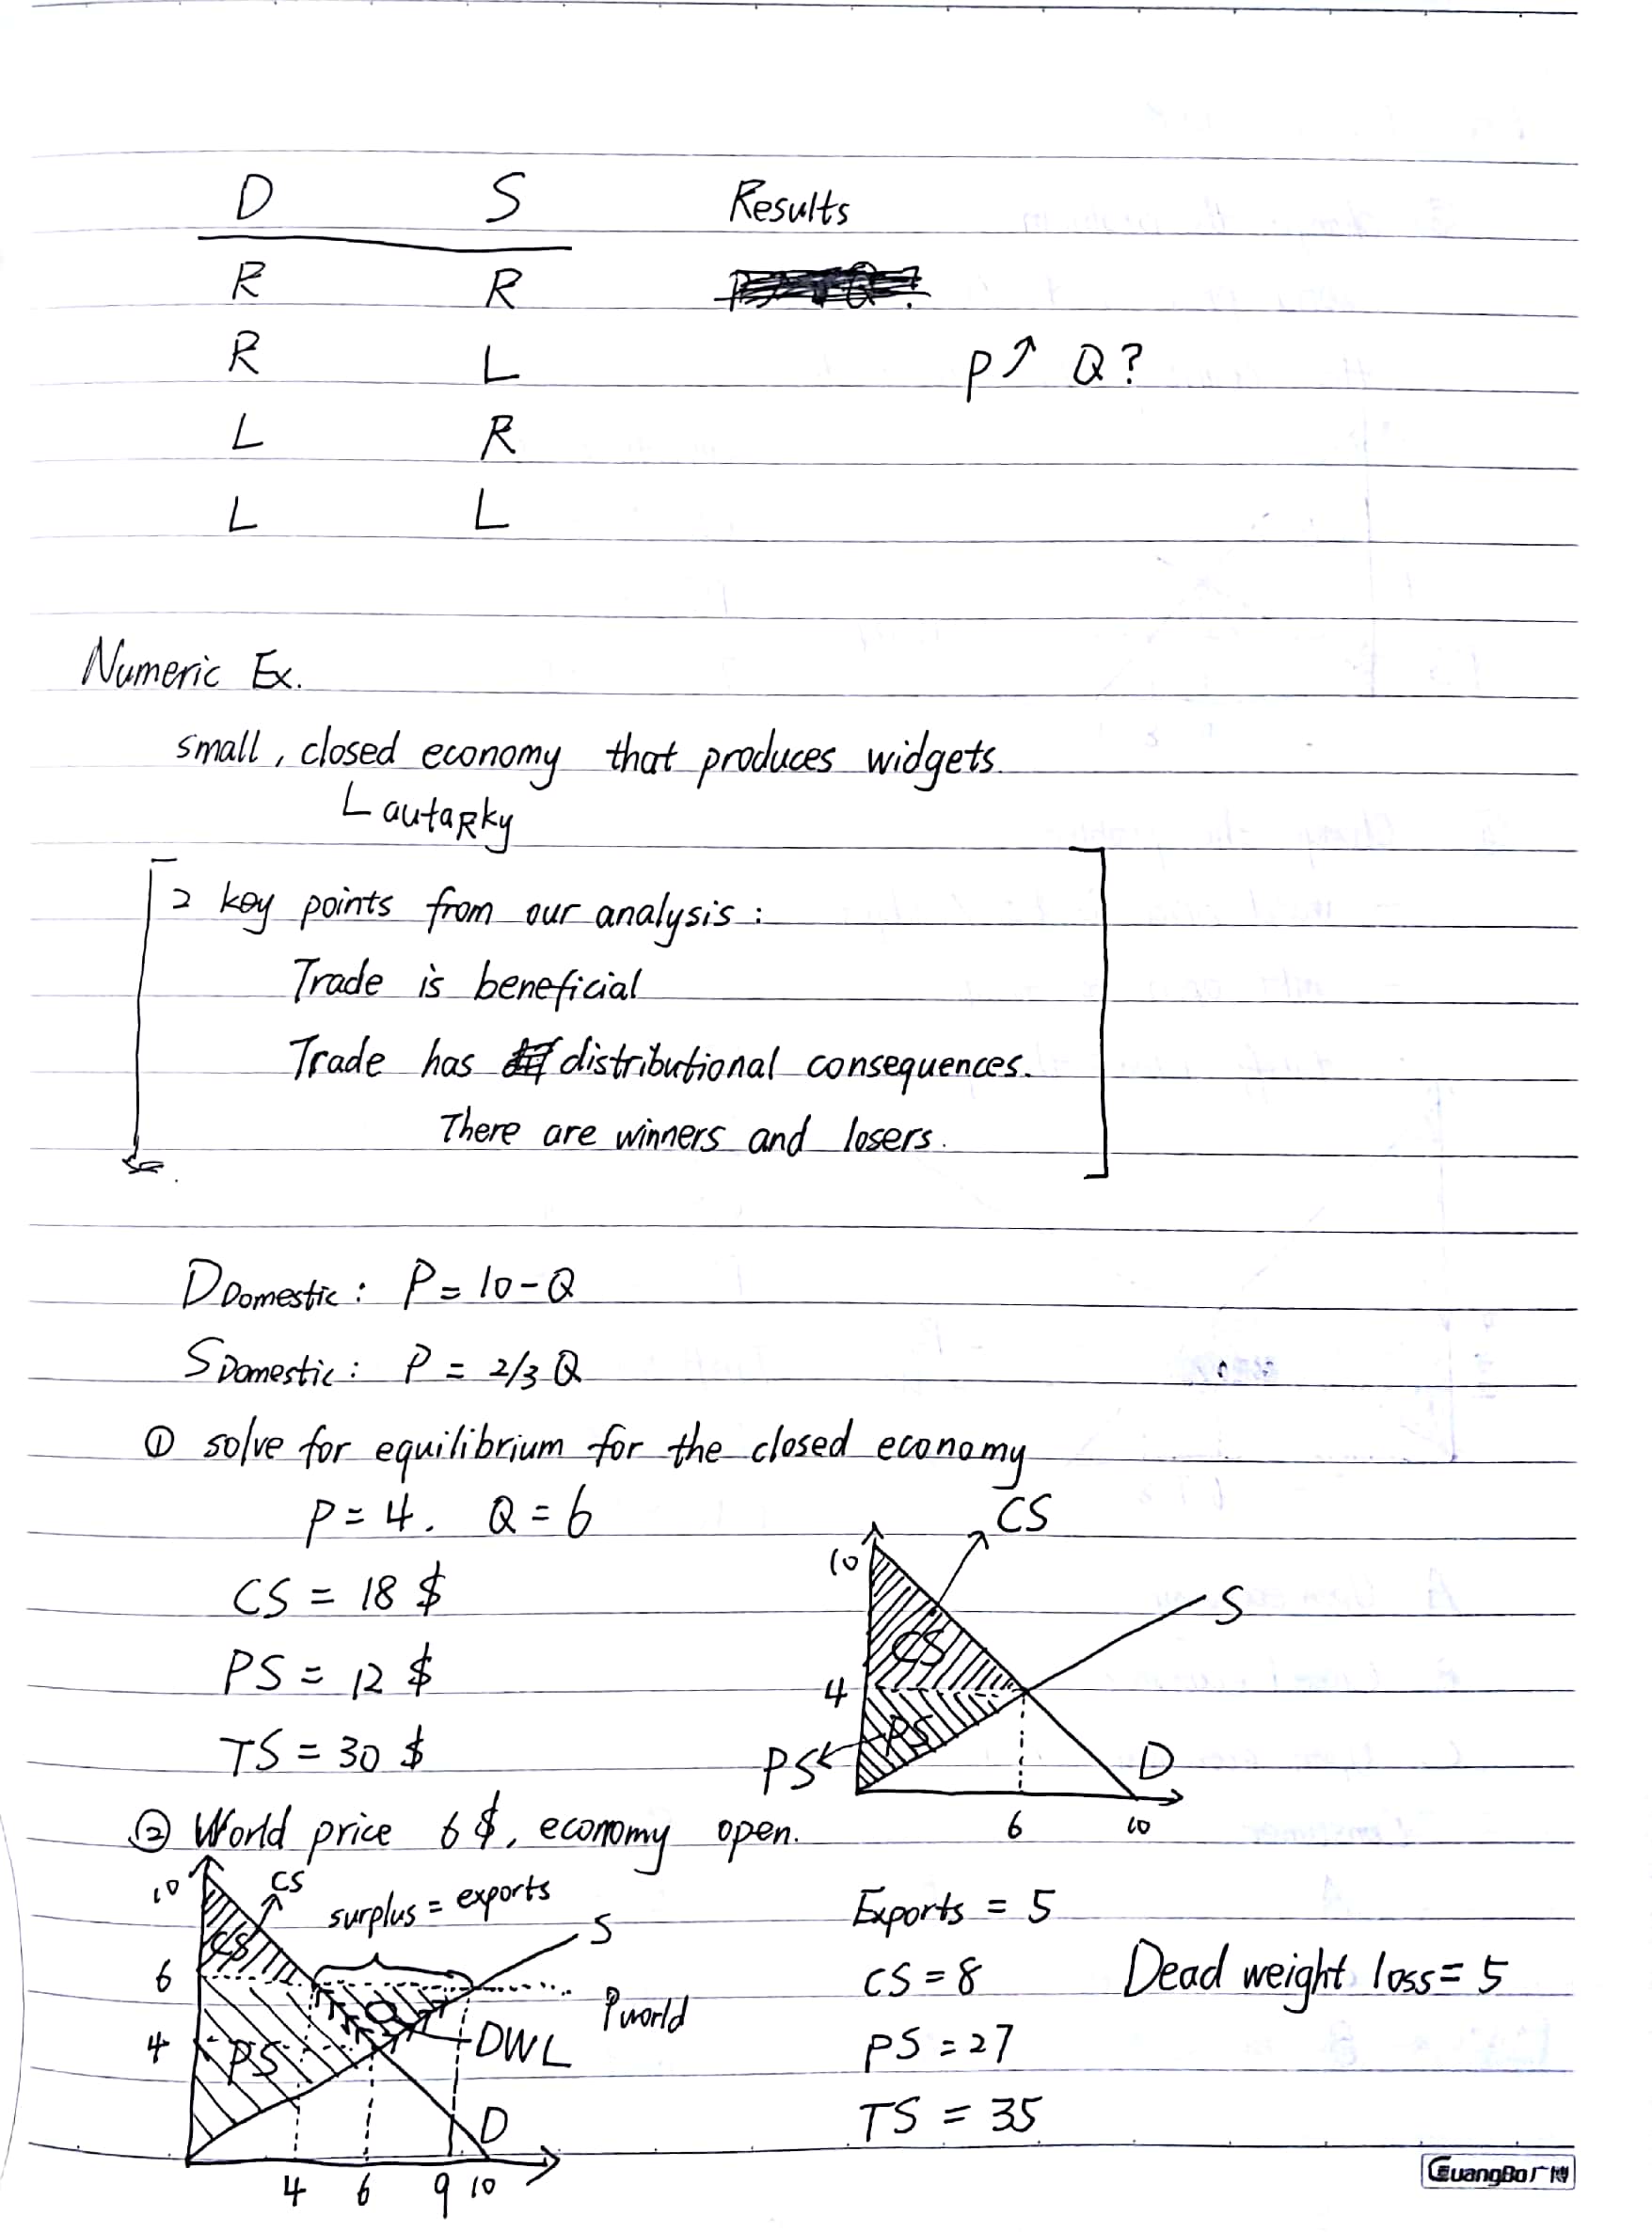 D S Results
R R
R L P↑ Q?
L R
L L
Numeric Ex.
small, closed economy that produces widgets.
L autaRky
2 key points from our analysis:
Trade is beneficial
Trade has distributional consequences.
There are winners and losers.
D Domestic: P = 10-Q
S Domestic: P = 2/3 Q
① solve for equilibrium for the closed economy
P = 4. Q = 6
CS = 18 $
PS = 12 $
TS = 30 $
CS
10
S
CS
4
PS
PS
D
6 10
② World price 6 $, economy open.
10 CS
surplus = exports
S
CS
6
Pworld
4 PS DWL
D
4 6 9 10
Exports = 5
CS = 8 Dead weight loss = 5
PS = 27
TS = 35
GuangBo广博